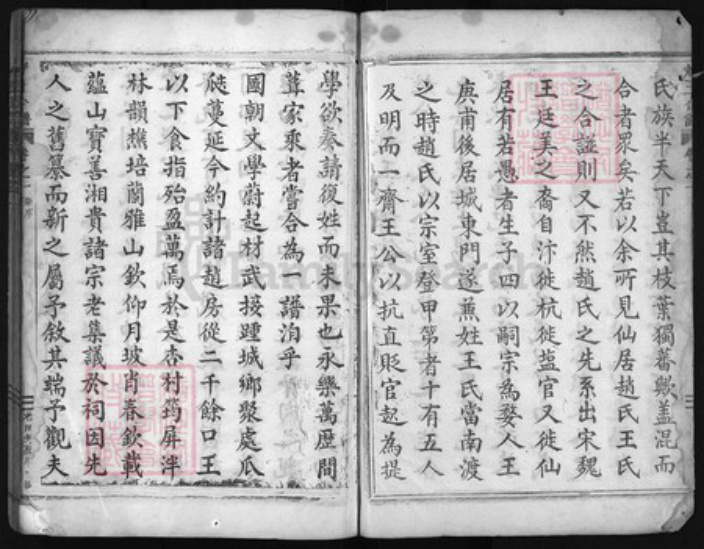 氏族半天下豈其枝葉獨蕃歟蓋混而
合者眾矣若以余所見仙居趙氏王氏
之合謚則又不然趙氏之先系出宋魏
王廷美之裔自汴徙杭徙鹽官又徙仙
居有若愚者生子四以嗣宗為婺人王
庚甫後居城東門遂蕪姓王氏當南渡
之時趙氏以宗室登甲第者十有五人
及明而一齋王公以抗直貶官起為提
學欲奏請復姓而未果也永樂萬歷間
葺家乘者嘗合為一譜洎乎
國朝文學蔚起材武接踵城鄉聚處瓜
瓞蔓延今約計諸趙房從二千餘口王
以下食指殆盈萬焉於是杏村筠屏泮
林韻樵培蘭雅山欽仰月坡肖春欽載
蘊山寶善湘貴諸宗老集議於祠因先
人之舊纂而新之屬予敘其端予觀夫
FamilySearch